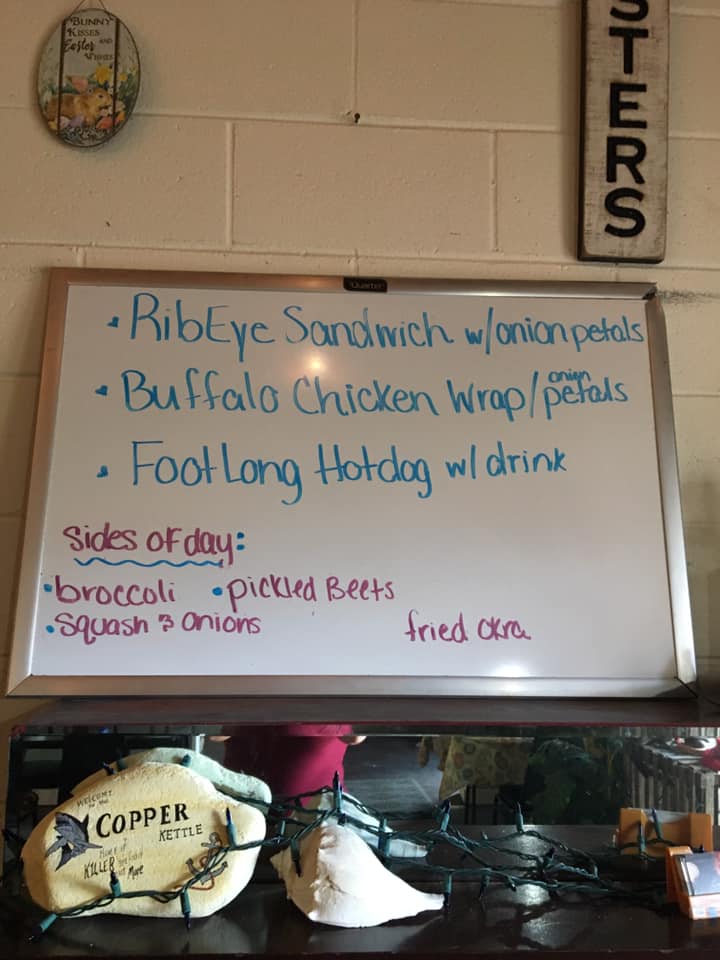 BUNNY
KISSES
AND
Easter
WISHES
STERS
Quartet
• RibEye Sandwich w/onion petals
• Buffalo Chicken Wrap/onion petals
• FootLong Hotdog w/ drink
Sides of day:
•broccoli •pickled Beets
•Squash & onions fried okra
WELCOME
to the
COPPER
KETTLE
Home of
KILLER
More